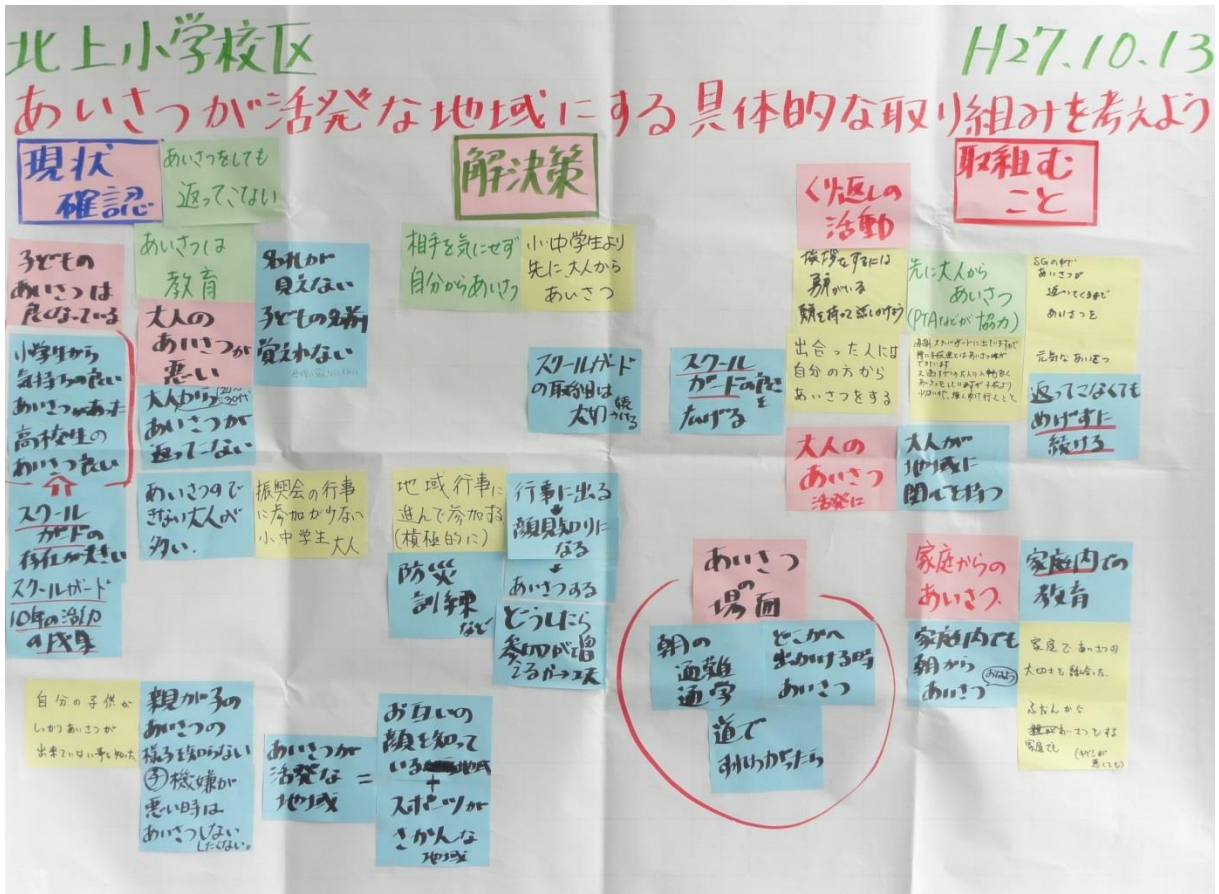 北上小学校区
H27.10.13
あいさつが活発な地域にする具体的な取り組みを考えよう
現状
確認
あいさつをしても
返ってこない
子どもの
あいさつは
良くなっている
あいさつは
教育
名札が
見えない
子どもの名前
覚えれない
大人の
あいさつが
悪い
小学生から
気持ちの良い
あいさつがあった
高校生の
あいさつ良い
大人から(20~30代)
あいさつが
返ってこない
スクール
ガードの
存在が大きい
スクールガード
10年の活動
の成果
あいさつので
きない大人が
多い.
振興会の行事
に参加が少ない
小中学生 大人
自分の子供が
しっかりあいさつが
出来ていない事を知った
親が子の
あいさつの
様子を知らない
子 機嫌が
悪い時は
あいさつしない
したくない。
あいさつが
活発な =
地域
お互いの
顔を知って
いる 地域
+
スポーツが
さかんな
地域
解決策
相手を気にせず
自分からあいさつ
小中学生より
先に大人から
あいさつ
スクールガード
の取組は
大切 続ける
スクール
ガードの良さを
広げる
地域行事に
進んで参加する
(積極的に)
防災
訓練
など
行事に出る
顔見知りに
なる
あいさつする
どうしたら
参加が増
えるか工夫
あいさつ
の
場面
朝の
通勤
通学
どこかへ
出かける時
あいさつ
道で
すれちがったら
取組む
こと
くり返しの
活動
挨拶をするには
勇気がいる
勇気を持って話しかけよう
先に大人から
あいさつ
(PTAなどが協力)
あいさつが
返ってくるまで
あいさつを
元気なあいさつ
出合った人には
自分の方から
あいさつをする
返ってこなくても
めげずに
続ける
大人の
あいさつ
活発に
大人が
地域に
関心を持つ
家庭からの
あいさつ.
家庭内での
教育
家庭内でも
朝から
あいさつ
おはよう
家庭であいさつの
大切さを話合った.
ふだんから
あいさつをする
家庭でも